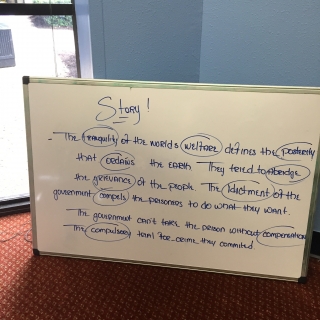 Story!
- The tranquility of the world's welfare defines the posterity
that ordains the earth They tried to abridge
the grievance of the people. The Idictment of the
government compels the personnes to do what they want.
The government can't take the person without compensation
The compulsory term for crime they commited.